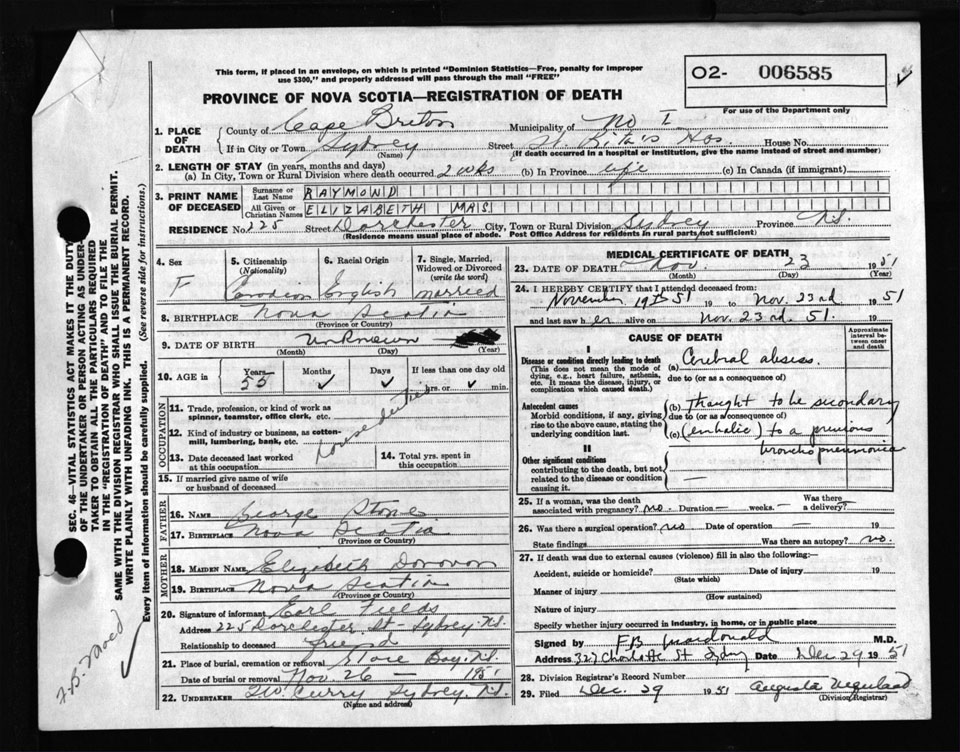 This form, if placed in an envelope, on which is printed "Dominion Statistics—Free, penalty for improper
use $300," and properly addressed will pass through the mail "FREE"
O2- 006585
For use of the Department only
PROVINCE OF NOVA SCOTIA—REGISTRATION OF DEATH
1. PLACE OF DEATH
County of Cape Breton Municipality of No I
If in City or Town Sydney (Name) Street St. Rita's Hos. House No.
(If death occurred in a hospital or institution, give the name instead of street and number)
2. LENGTH OF STAY (in years, months and days)
(a) In City, Town or Rural Division where death occurred 2 wks (b) In Province life (c) In Canada (if immigrant)
3. PRINT NAME OF DECEASED
Surname or Last Name RAYMOND
All Given or Christian Names ELIZABETH MAS
RESIDENCE No. 225 Street Dorchester City, Town or Rural Division Sydney Province N.S.
(Residence means usual place of abode. Post Office Address for residents in rural parts, not sufficient)
4. Sex F
5. Citizenship (Nationality) Canadian
6. Racial Origin English
7. Single, Married, Widowed or Divorced (write the word) married
8. BIRTHPLACE Nova Scotia
(Province or Country)
9. DATE OF BIRTH unknown
(Month) (Day) (Year)
10. AGE in Years 55 Months ✓ Days ✓ If less than one day old hrs. or ✓ min.
OCCUPATION
11. Trade, profession, or kind of work as spinner, teamster, office clerk, etc.
12. Kind of industry or business, as cotton-mill, lumbering, bank, etc.
house duties
13. Date deceased last worked at this occupation
14. Total yrs. spent in this occupation
15. If married give name of wife or husband of deceased
FATHER
16. NAME George Stone
17. BIRTHPLACE Nova Scotia
(Province or Country)
MOTHER
18. MAIDEN NAME Elizabeth Donovon
19. BIRTHPLACE Nova Scotia
(Province or Country)
20. Signature of informant Earl Fields
Address 225 Dorchester St - Sydney N.S.
Relationship to deceased friend
21. Place of burial, cremation or removal Bay. N.S.
Date of burial or removal Nov. 26 — 1951
22. UNDERTAKER Curry Sydney, N.S.
(Name and address)
MEDICAL CERTIFICATE OF DEATH
23. DATE OF DEATH Nov. 23 1951
(Month) (Day) (Year)
24. I HEREBY CERTIFY that I attended deceased from:
November 19th 51 19 to Nov. 23rd 1951
and last saw h er alive on Nov. 23rd. 51. 19
CAUSE OF DEATH
Approximate interval between onset and death
I
Disease or condition directly leading to death
(This does not mean the mode of dying, e.g., heart failure, asthenia, etc. It means the disease, injury, or complication which caused death.)
(a) Cerebral abscess.
due to (or as a consequence of)
Antecedent causes
Morbid conditions, if any, giving rise to the above cause, stating the underlying condition last.
(b) Thought to be secondary
due to (or as a consequence of)
(c) (embolic) to a previous
broncho pneumonia
II
Other significant conditions
contributing to the death, but not related to the disease or condition causing it.
—
25. If a woman, was the death associated with pregnancy? no. Duration — weeks. — Was there a delivery?
26. Was there a surgical operation? no Date of operation — 19
State findings Was there an autopsy? no.
27. If death was due to external causes (violence) fill in also the following:—
Accident, suicide or homicide? Date of injury 19
(State which)
Manner of injury
(How sustained)
Nature of injury
Specify whether injury occurred in industry, in home, or in public place
Signed by F.B. Macdonald M.D.
Address 327 Charlotte St Sydney Date Dec 29 1951
28. Division Registrar's Record Number
29. Filed Dec. 29 1951 Augusta
(Division Registrar)
SEC. 46—VITAL STATISTICS ACT MAKES IT THE DUTY
OF THE UNDERTAKER OR PERSON ACTING AS UNDER-
TAKER TO OBTAIN ALL THE PARTICULARS REQUIRED
IN THE "REGISTRATION OF DEATH" AND TO FILE THE
SAME WITH THE DIVISION REGISTRAR WHO SHALL ISSUE THE BURIAL PERMIT.
WRITE PLAINLY WITH UNFADING INK. THIS IS A PERMANENT RECORD.
Every item of Information should be carefully supplied. (See reverse side for instructions.)